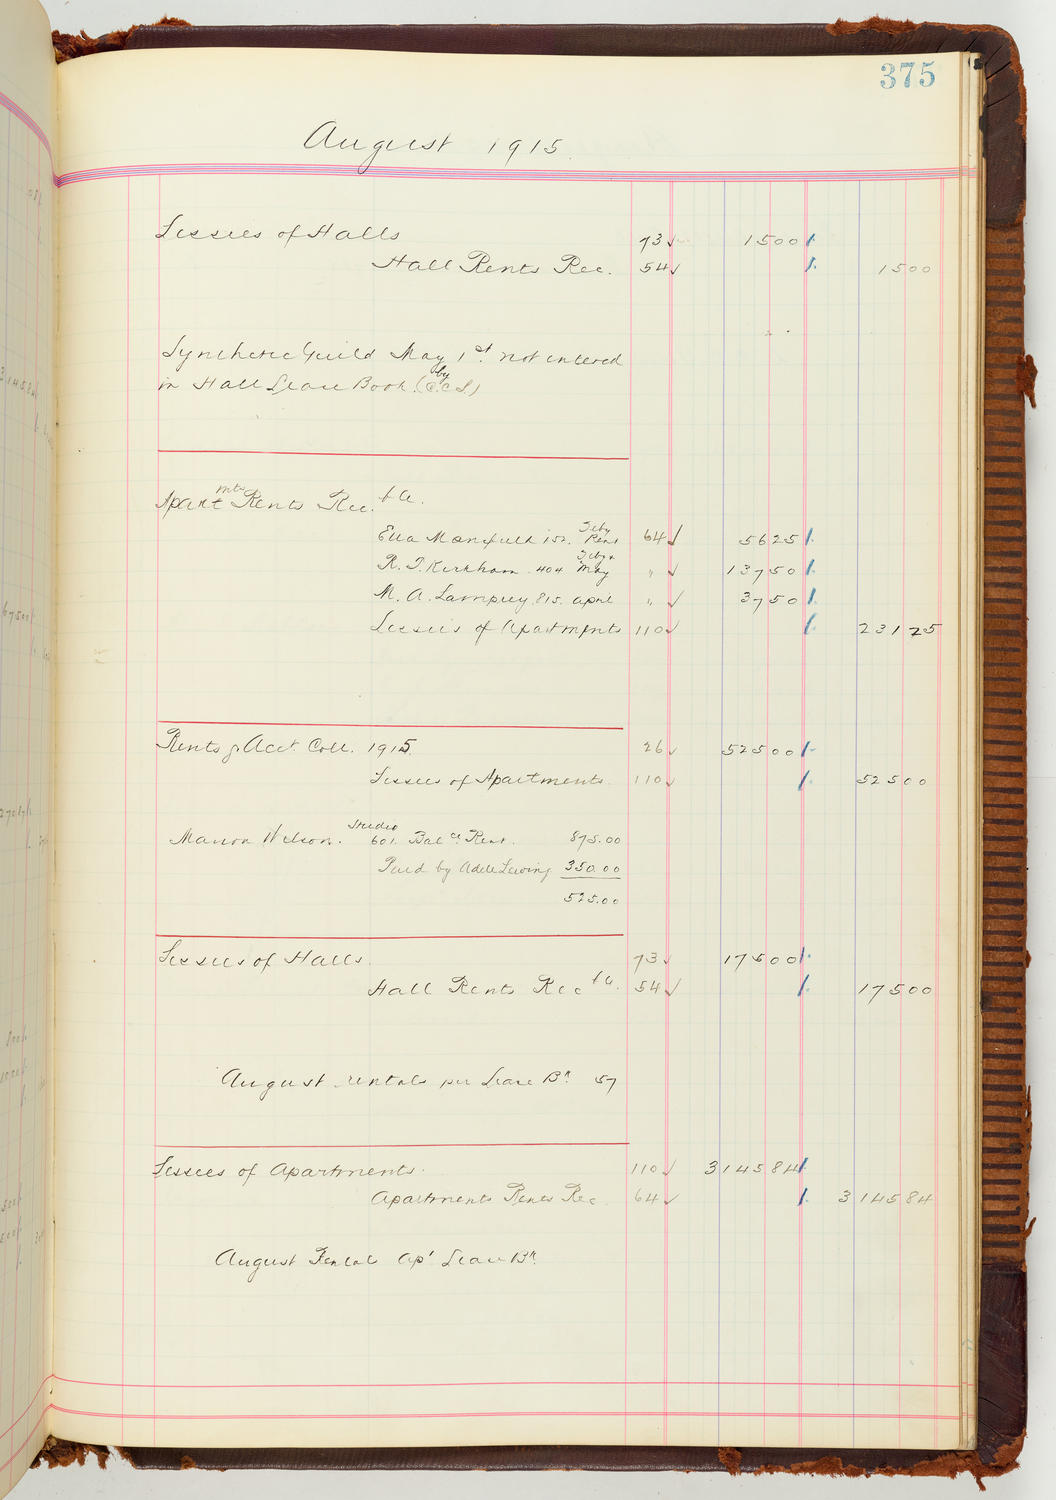 375
August 1915
Lessees of Halls 73 1500
Hall Rents Rec. 54 1500
Synthetic Guild May 1st. not entered
in Hall Lease Book. (by C.C.S.)
Apartmts Rents Rec.
Ella Mansfield 152. Feby Rent 64 5625
R. T. Kirkham 404 Feby & May " 13750
M. A. Lamprey 815. April " 3750
Lessees of Apartments 110 23125
Rents & Acct Coll. 1915 26 52500
Lessees of Apartments. 110 52500
Marion Wilson. Studio 601. Balce Rent. 875.00
Paid by Adele Lewing 350.00
525.00
Lessees of Halls. 73 17500
Hall Rents Rec 54 17500
August rentals per Lease Bk 57
Lessees of Apartments. 110 314584
Apartments Rents Rec 64 314584
August Rental Apt Lease Bk.